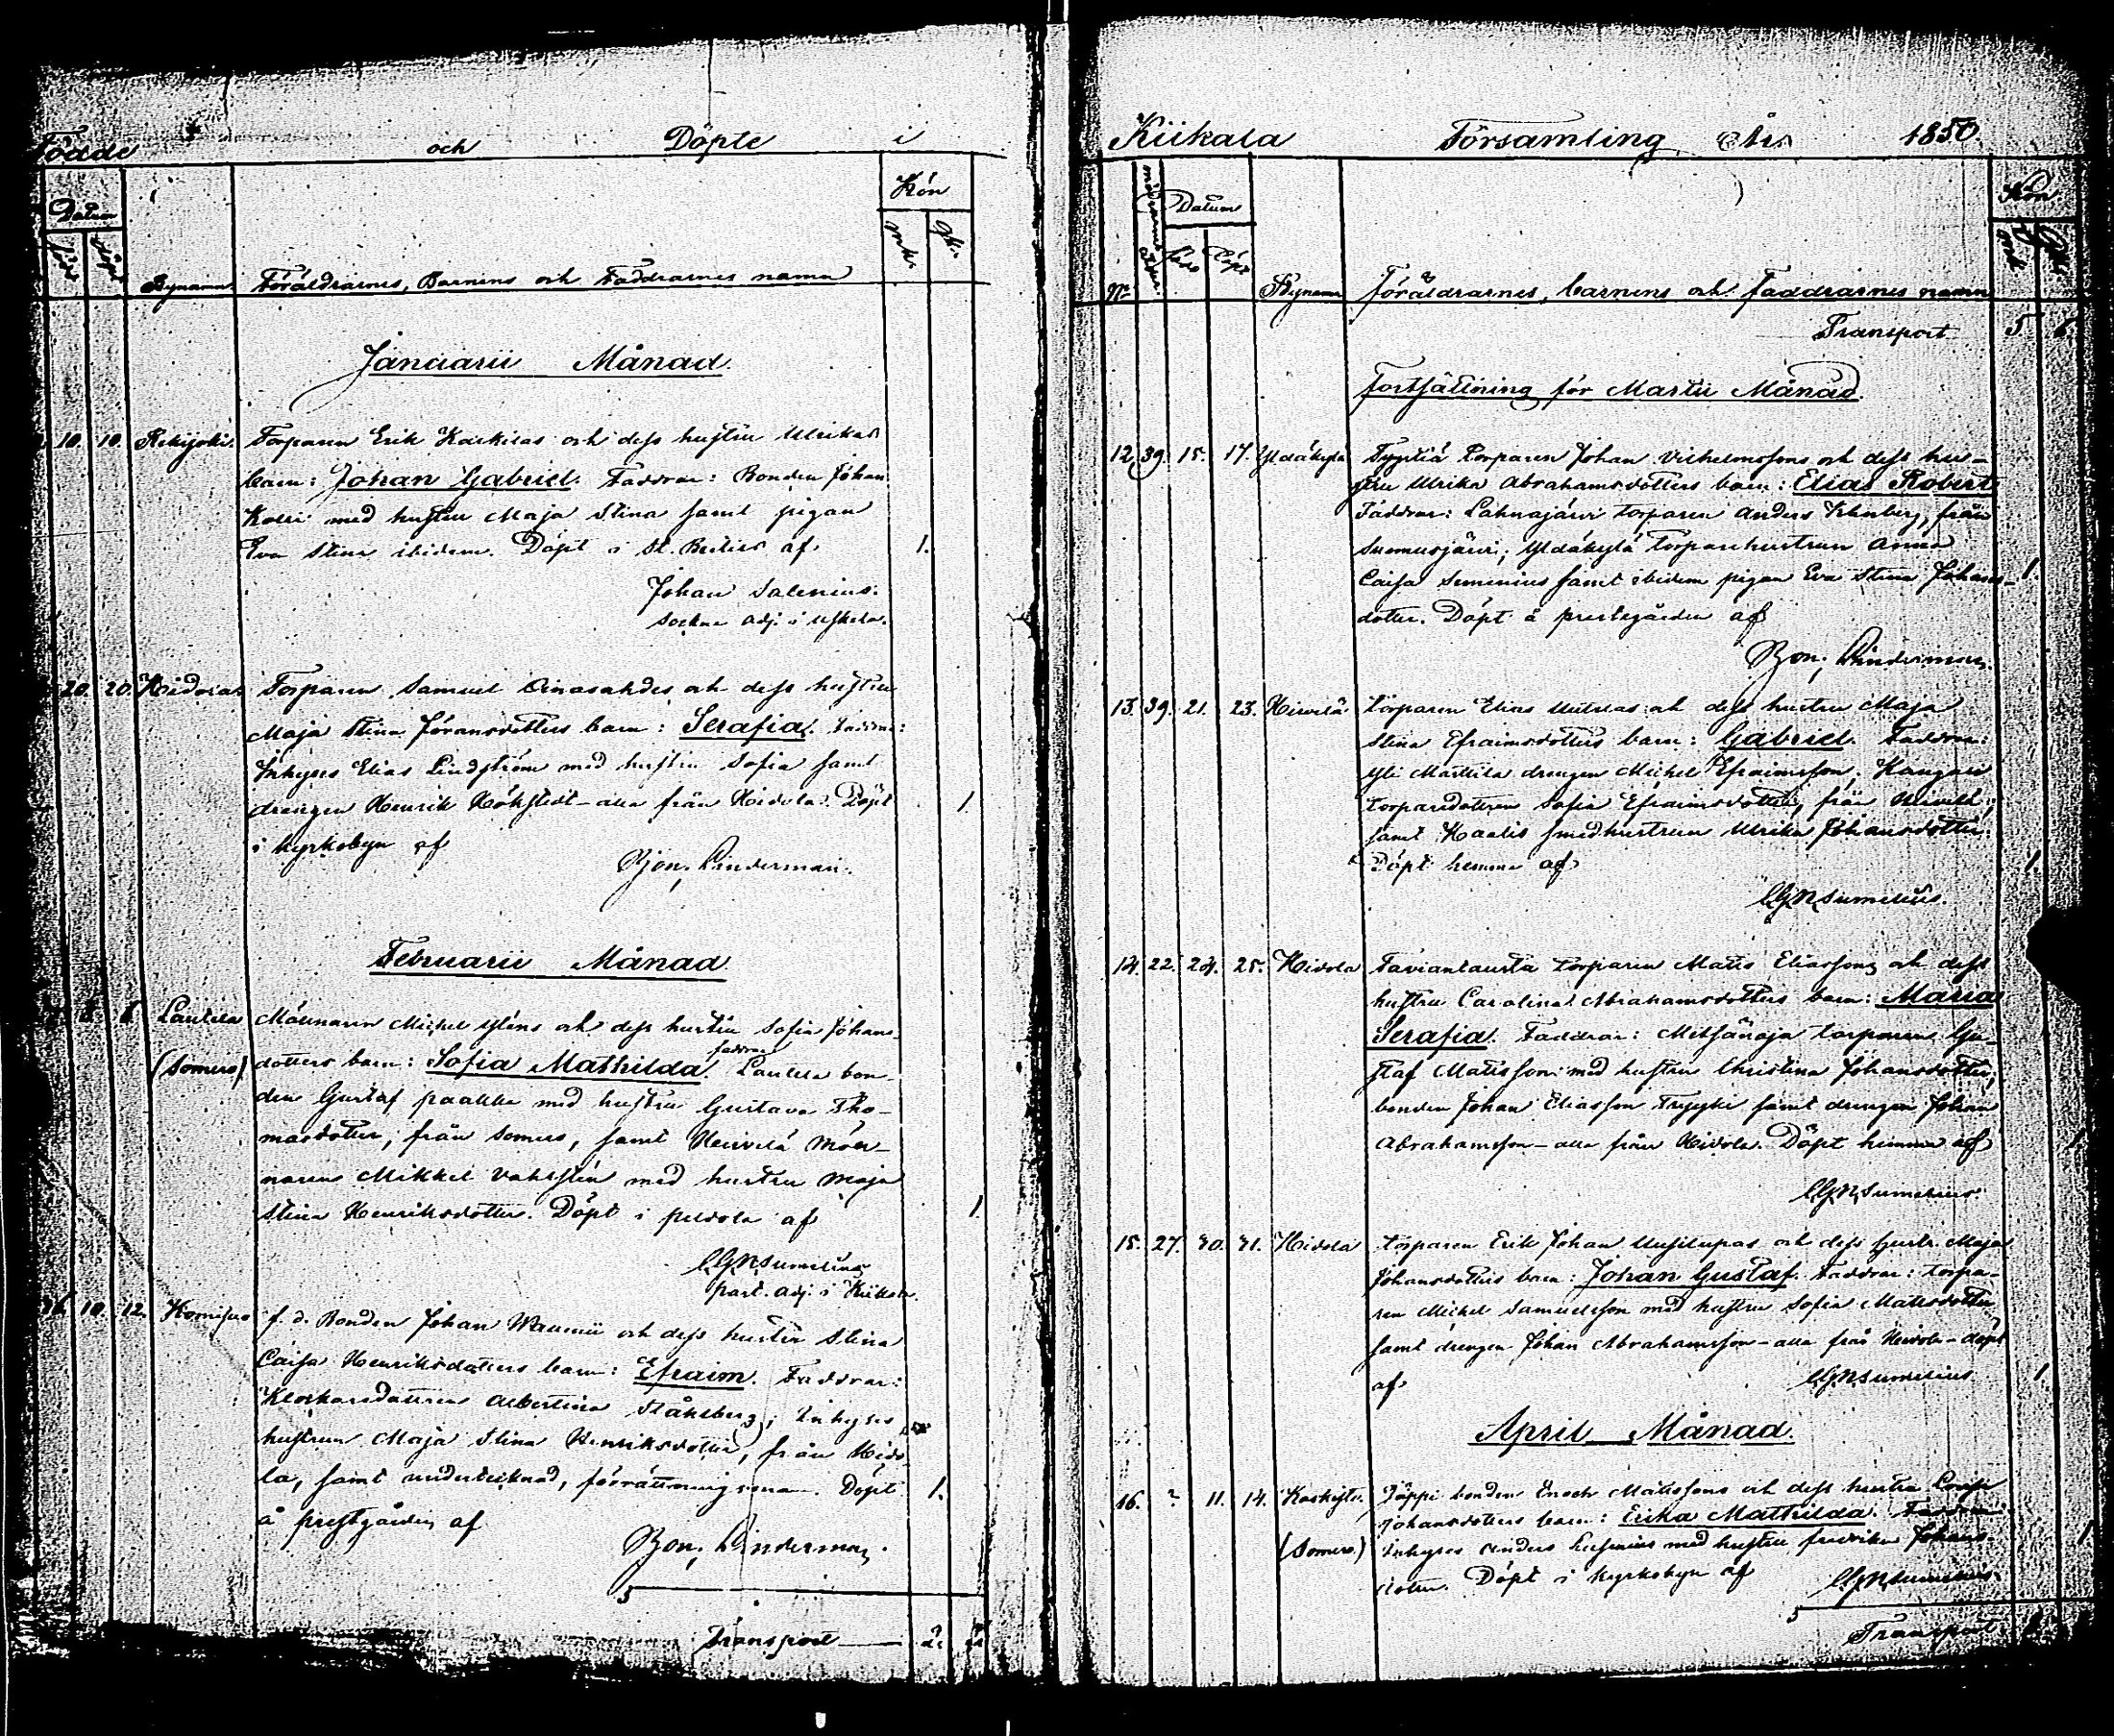 Födde och Döpte i
Datum Kön
född döpt mk. qk.
Bynamn Föräldrarnes, Barnens och Faddrarnes namn
Januarii Månad.
10. 10. Rekijoki. Torparen Erik Kaikilas och dess hustru Ulrikas
barn: Johan Gabriel. Faddrar: Bonden Johan
med hustru Maja Stina samt pigan
Eva Stina ibidem. Döpt i St. af 1.
Johan Salenius.
Sockne adj. i Uskela.
20. 20. Hidola Torparen Samuel och dess hustru
Maja Stina Göransdotters barn: Serafia. Faddrar:
Inhyses Elias Lindström med hustru Sofia samt
drengen Henrik Hökstedt - alla från Hidola. Döpt 1.
i kyrkobyn af
Bjon. Linderman.
Februarii Månad.
8 8 Lautela Mölnaren Michel Gléns och dess hustru Sofia Johans-
(Somero) dotters barn: Sofia Mathilda. faddrar Lautela bon-
den Gustaf paakka med hustru Gustava Tho-
masdotter, från Somero, samt Hirvelä Möl-
naren Mikkel Vahlstén med hustru Maja
Stina Henriksdotter. Döpt i af 1.
CGNSumelius
past. adj. i Kiikala.
10. 12. Komisuo f. d. Bonden Johan och dess hustru Stina
Caisa Henriksdotters barn: Efraim. Faddrar:
Klockarsdottren Albertina Ståhlberg; Inhyses
hustrun Maja Stina Henriksdotter, från Hido-
la, samt undertecknad, förrättningsman. Döpt 1.
å prestgården af
Bon. Linderman.
5
Transport 2.
Kiikala Församling År 1850.
Datum Kön
No född döpt Bynamn Föräldrarnes, barnens och faddrarnes namn
Transport 5 6
Fortsättning för Martii Månad.
12. 39. 15. 17. Yldäkylä Torparen Johan Vilhelmssons och dess hu-
stru Ulrika Abrahamsdotters barn: Elias Robert
Faddrar: Lahnajärvi torparen Anders från
Suomusjärvi; Yldäkylä Torparehustrun Anna
Caisa Sumenius samt ibidem pigan Eva Stina Johans- 1.
dotter. Döpt å prestegården af
Bon. Linderman.
13. 39. 21. 23. Hirvelä Torparen Elias och dess hustru Maja
Stina Efraimsdotters barn: Gabriel. Faddrar:
Yli Marttila drengen Michel Efraimsson; Kangas
torparedottren Sofia Efraimsdotter, från Hirvelä;
samt Kaalis smedhustrun Ulrika Johansdotter.
Döpt hemma af 1.
CGNSumelius.
14. 22. 24. 25. Hidola Taviantausta torparen Matts Eliassons och dess
hustru Carolina Abrahamsdotters barn: Maria
Serafia. Faddrar: Metsänoja torparen Gu-
staf Matsson med hustru Christina Johansdotter;
bonden Johan Eliasson samt drengen Johan
Abrahamsson - alla från Hidola. Döpt hemma af 1.
CGNSumelius.
15. 27. 30. 31. Hidola Torparen Erik Johan Uusitupas och dess hustr. Maja
Johansdotters barn: Johan Gustaf. Faddrar: torpa-
ren Michel Samuelsson med hustru Sofia Matsdotter
samt drengen Johan Abrahamsson - alla från Hidola - döpt
af CGNSumelius 1.
April Månad.
16. ? 11. 14. bonden Enoch Matssons och dess hustru
Johansdotters barn: Erika Mathilda. Faddrar:
(Somero.) Inhyses Anders med hustru fredrika Johans- 1
dotter. Döpt i kyrkobyn af CGNSumelius.
5
Transport